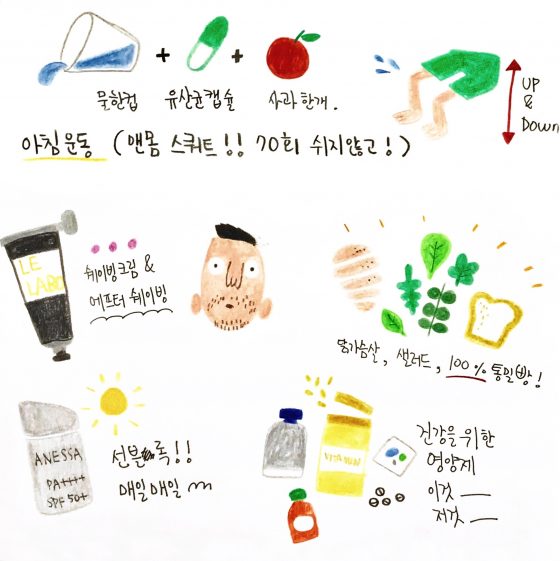 물한컵
유산균캡슐
사과한개.
UP
&
Down
아침운동 (맨몸 스쿼트!! 70회 쉬지않고!)
LE
LABO
쉐이빙크림 &
에프터쉐이빙
닭가슴살, 샐러드, 100% 통밀빵!
ANESSA
PA++++
SPF 50+
선블록!!
매일매일
VITAMIN
건강을 위한
영양제
이것
저것